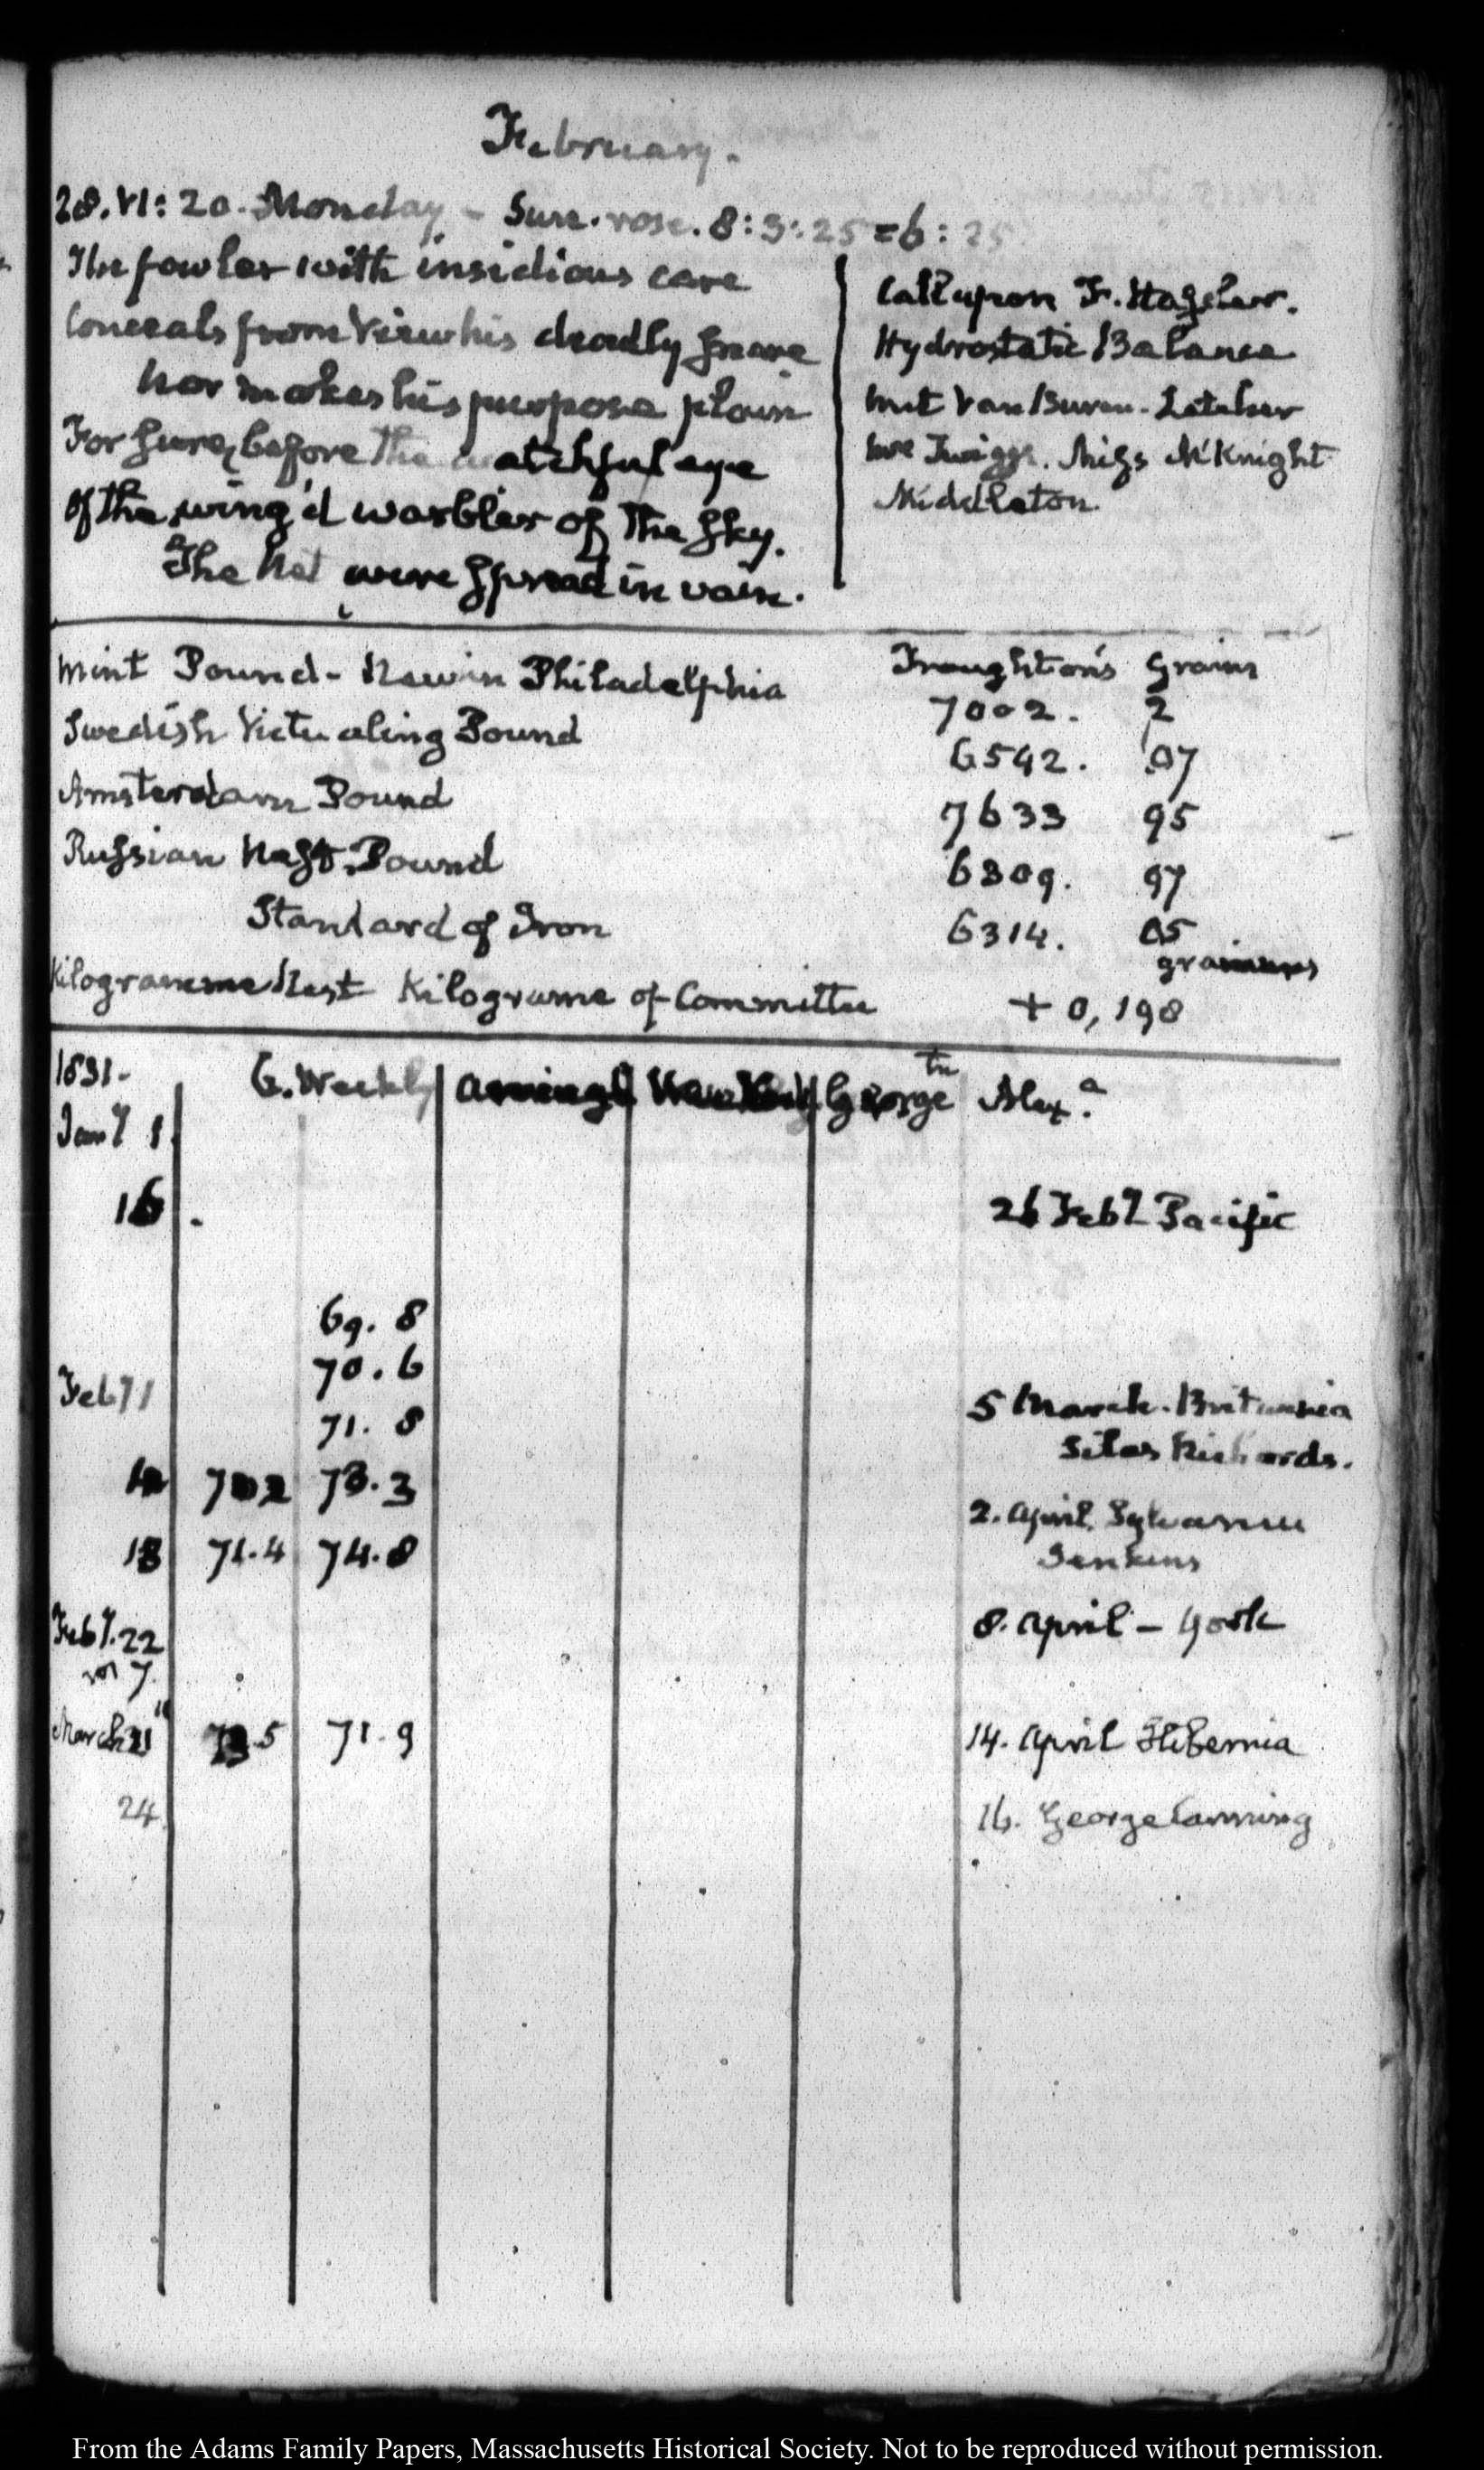 February.
28. VI: 20. Monday - Sun. rose. 8:3:25 = 6:25
The fowler with insidious care
Conceals from View his deadly snare
Nor makes his purpose plain
For sure, before the watchful eye
Of the wing'd warbler of the sky.
The Net were spread in vain.
Call upon F. Hassler.
Hydrostatic Balance
met Van Buren. Letcher
Twiggs. Miss McKnight
Middleton
Mint Pound - Now in Philadelphia
Swedish Victualing Pound
Amsterdam Pound
Russian Pound
Standard of Iron
Kilogramme Kilograme of Committee
Troughton's Grains
7002. 2
6542. 07
7633 95
6309. 97
6314. 05
+ 0,198
1831.
G. Weekly George tn Alex.a
Jany 1.
16 26 Feby Pacific
69. 8
70. 6
Feby 1 71. 8 5 March. Britannia
Silas Richards.
73.3 2. April. Sylvanus
Jenkins
13 71.4 74.8
Feby. 22 8. April - York
7.
March 71.9 14. April Hibernia
24 16. George Canning
From the Adams Family Papers, Massachusetts Historical Society. Not to be reproduced without permission.